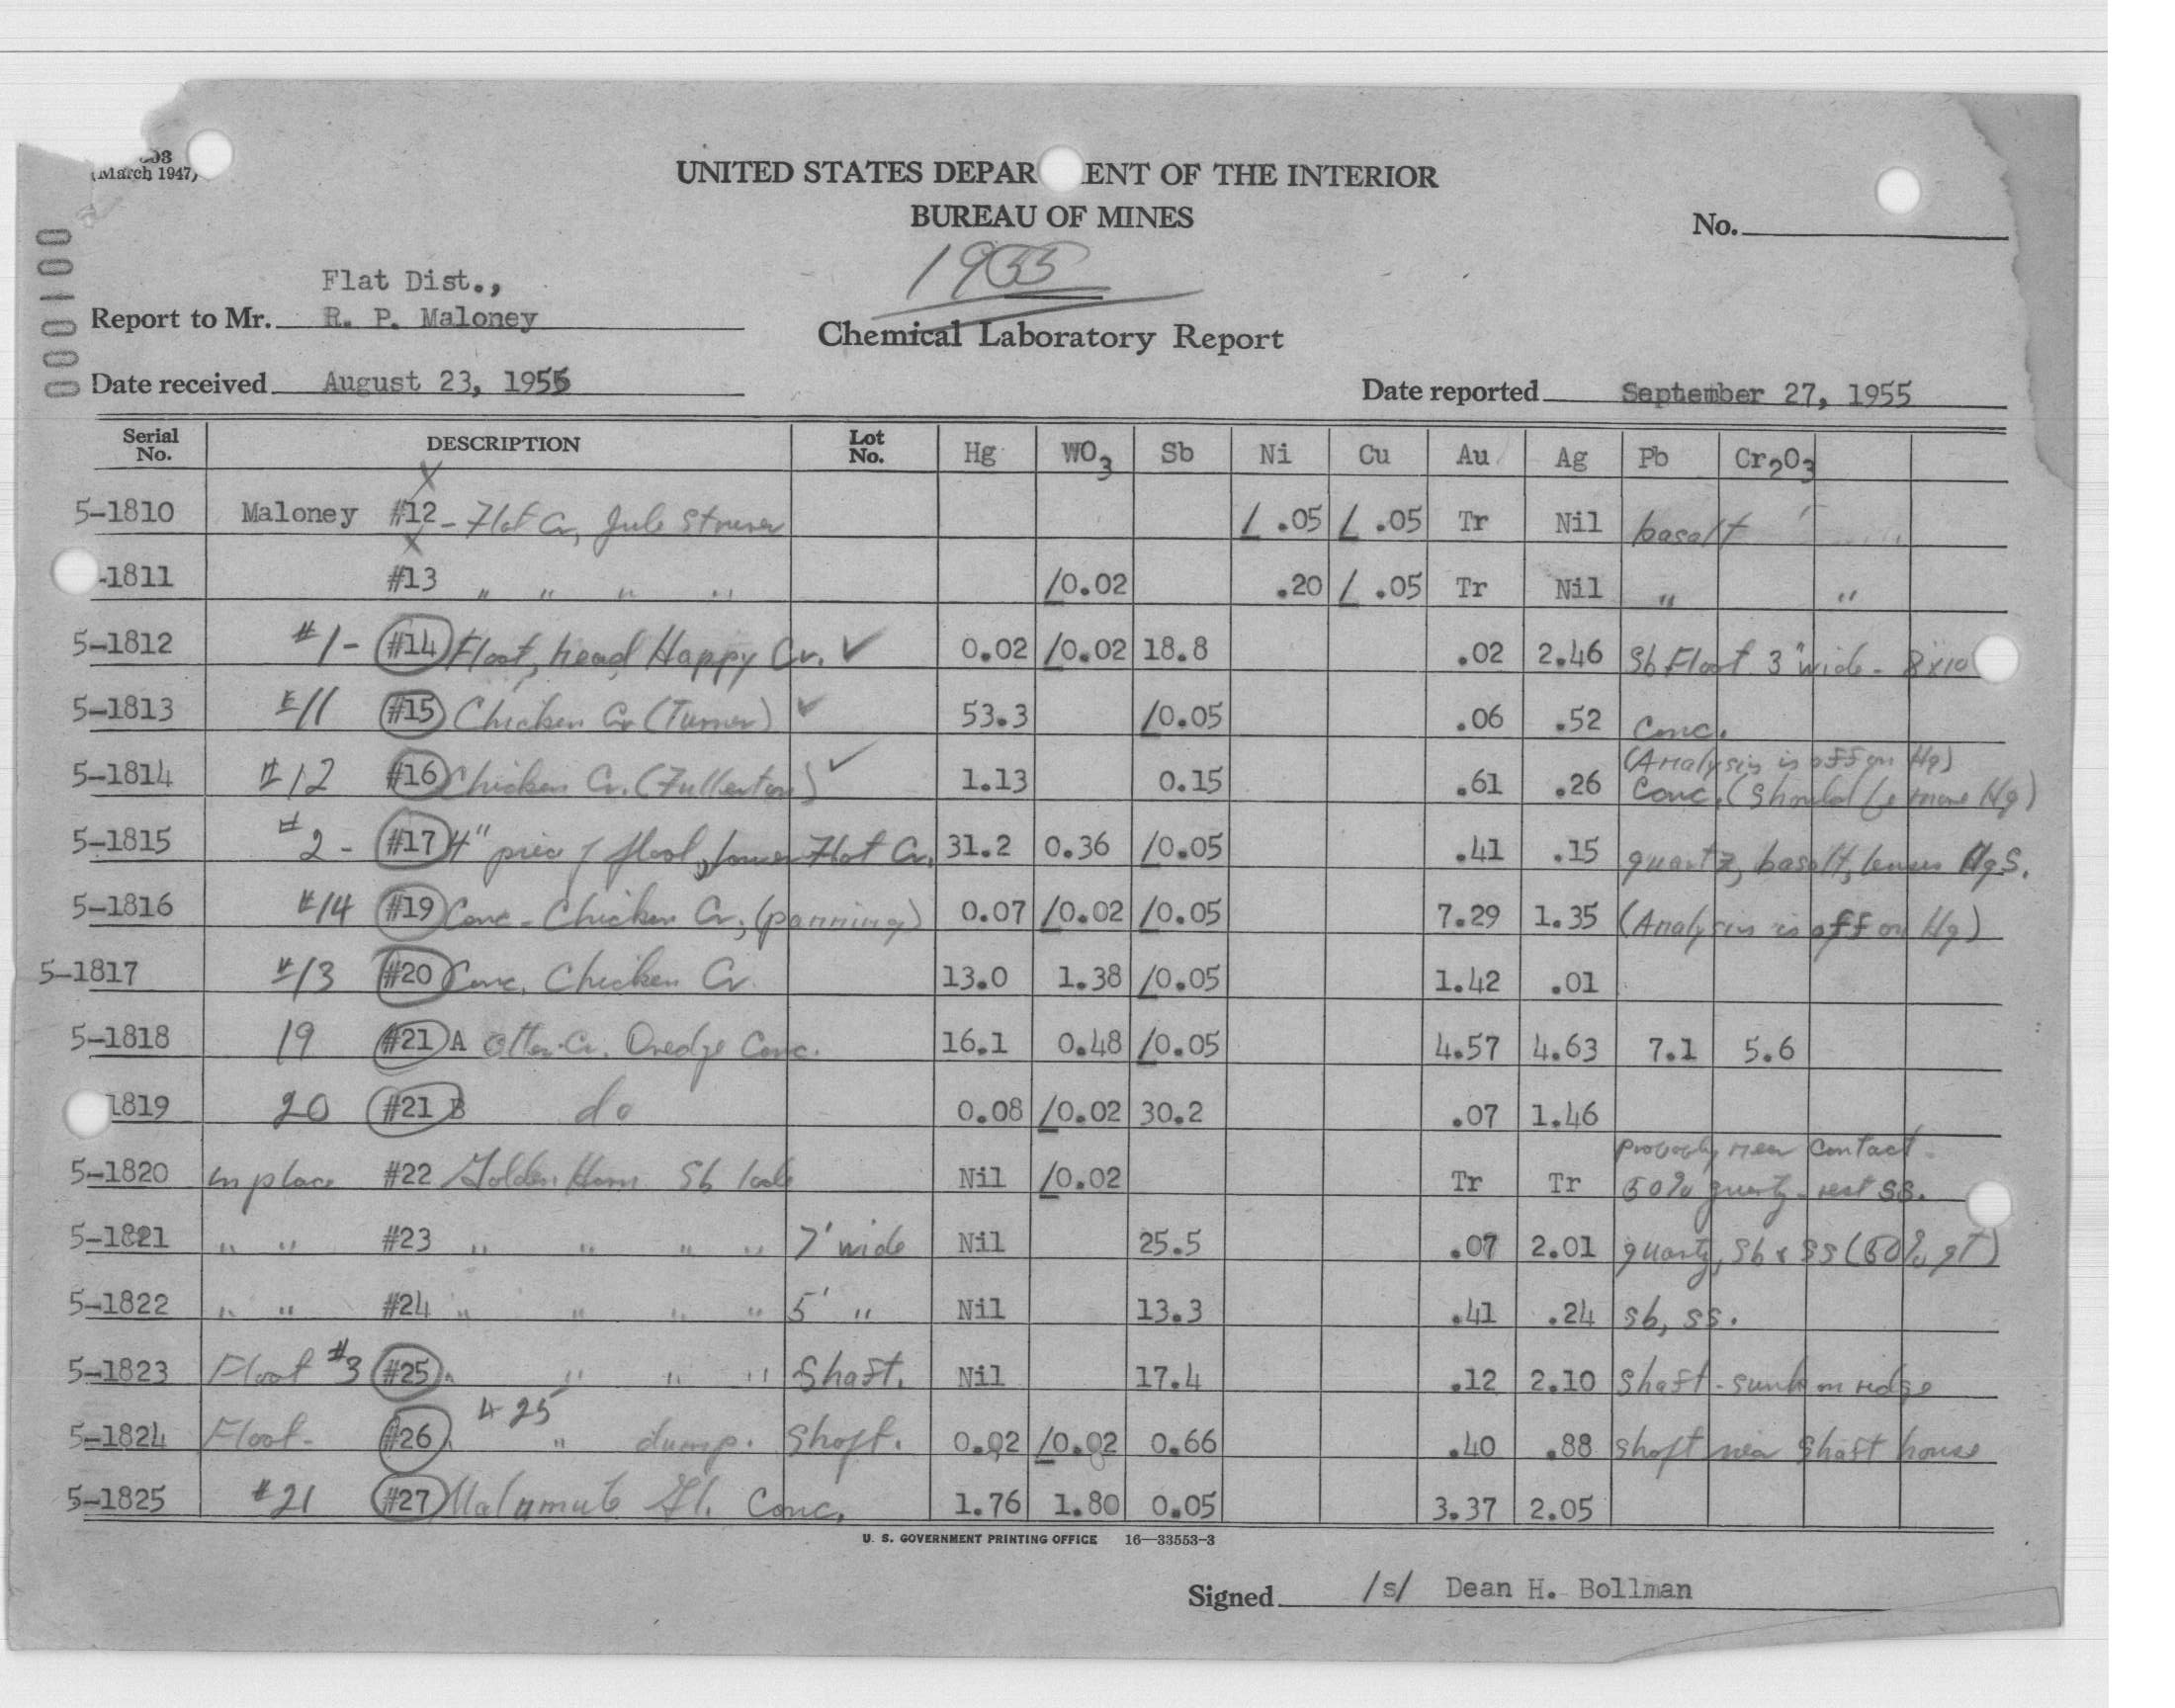 03
(March 1947)
UNITED STATES DEPAR ENT OF THE INTERIOR
BUREAU OF MINES
No.
001000
1955
Flat Dist.,
Report to Mr. R. P. Maloney
Chemical Laboratory Report
Date received August 23, 1955
Date reported September 27, 1955
Serial No. DESCRIPTION Lot No. Hg WO3 Sb Ni Cu Au Ag Pb Cr2O3
5-1810 Maloney #12 - Flat Cr, Jule / .05 / .05 Tr Nil basalt
-1811 #13 " " " " /0.02 .20 / .05 Tr Nil " "
5-1812 #1- #14 Float, head Happy Cr. ✓ 0.02 /0.02 18.8 .02 2.46 Sb Float 3" wide - 8x10
5-1813 #11 #15 Chicken Cr (Turner) ✓ 53.3 /0.05 .06 .52 Conc.
5-1814 #12 #16 Chicken Cr. (Fullerton) ✓ 1.13 0.15 .61 .26 (Analysis is off on Hg) Conc. (Should be more Hg)
5-1815 #2- #17 4" piece of float, Flat Cr. 31.2 0.36 /0.05 .41 .15 quartz, basalt, lenses HgS.
5-1816 #14 #19 Conc - Chicken Cr, (panning) 0.07 /0.02 /0.05 7.29 1.35 (Analysis is off on Hg)
5-1817 #13 #20 Conc. Chicken Cr. 13.0 1.38 /0.05 1.42 .01
5-1818 19 #21 A Otter Cr. Dredge Conc. 16.1 0.48 /0.05 4.57 4.63 7.1 5.6
1819 20 #21 B do 0.08 /0.02 30.2 .07 1.46
5-1820 in place #22 Golden Horn Sb lode Nil /0.02 Tr Tr probably near contact. 50% quartz - rest ss.
5-1821 " " #23 " " " " 7' wide Nil 25.5 .07 2.01 quartz, Sb & SS (50% qt)
5-1822 " " #24 " " " " 5' " Nil 13.3 .41 .24 Sb, SS.
5-1823 Float #3 #25 " " " " Shaft. Nil 17.4 .12 2.10 Shaft - sunk on ridge
5-1824 Float - #26 " 425 " dump. Shaft. 0.02 /0.02 0.66 .40 .88 shaft near shaft house
5-1825 #21 #27 Malamute Gl. Conc. 1.76 1.80 0.05 3.37 2.05
U. S. GOVERNMENT PRINTING OFFICE 16—33553-3
Signed /s/ Dean H. Bollman